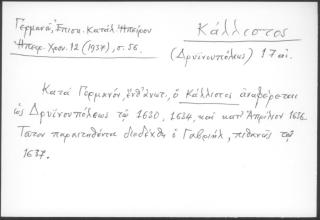 Γερμανό, Ἐπισκ. Κατάλ. Ἠπείρου
Ἠπειρ. Χρον. 12 (1937), σ. 56.
Κάλλιστος
(Δρυϊνουπόλεως) 17 αἰ.
Κατὰ Γερμανόν, ἐνθ' ἀνωτ., ὁ Κάλλιστος ἀναφέρεται
ὡς Δρυϊνουπόλεως τῷ 1630, 1634, καὶ κατ' Ἀπρίλιον 1636.
Τοῦτον παραιτηθέντα διεδέχθη ὁ Γαβριήλ, πιθανῶς τῷ
1637.